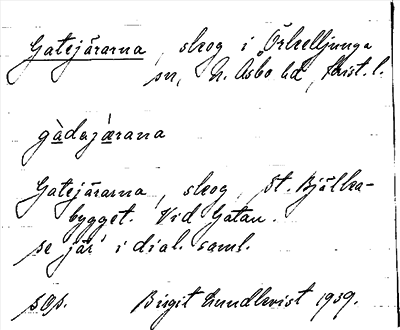 Gatejärarna, skog i Örkelljunga
sn, N. Åsbo hd, Krist. l.
gàdajǽrana
Gatejärarna, skog, St. Bjälka-
bygget. Vid Gatan.
se jär i dial. saml.
sOp. Birgit Lundkvist 1939.